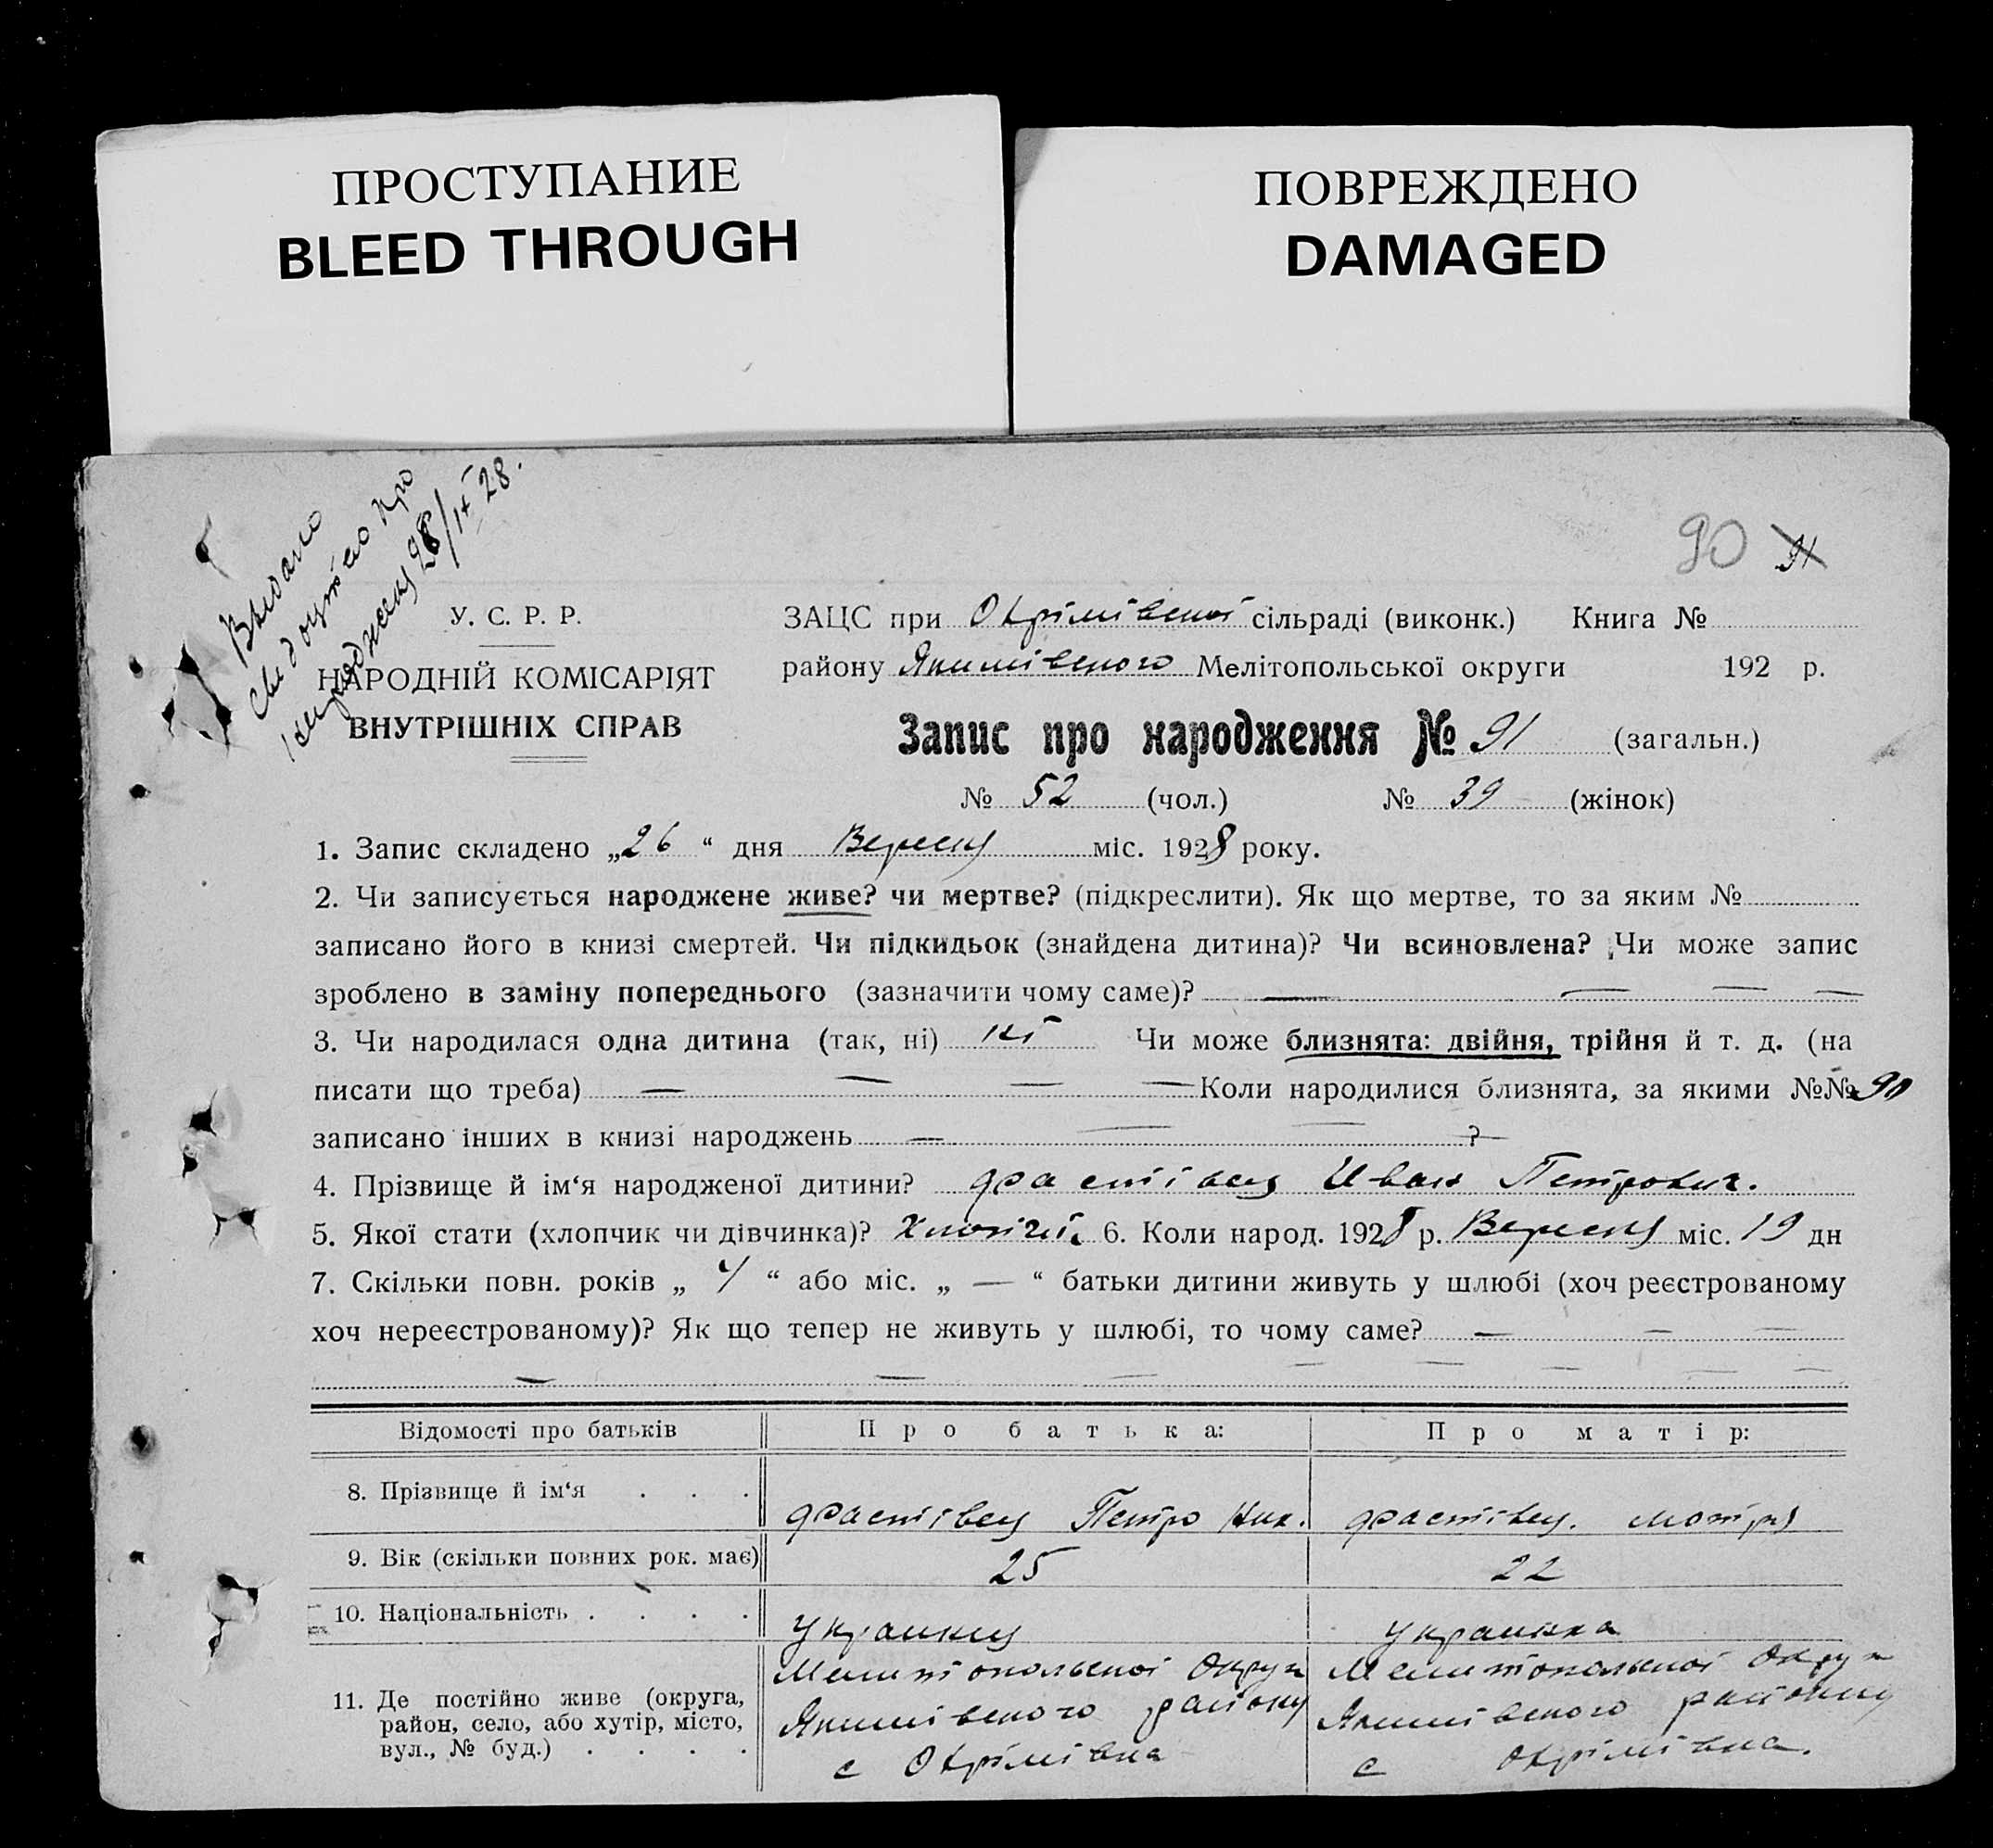 ПРОСТУПАНИЕ
BLEED THROUGH
ПОВРЕЖДЕНО
DAMAGED
Видано
свидоцтво про
народження 28/IX 28.
90 91
У. С. Р. Р.
НАРОДНІЙ КОМІСАРІЯТ
ВНУТРІШНІХ СПРАВ
ЗАЦС при Охрімівської сільраді (виконк.) Книга №
району Якимівського Мелітопольської округи 192 р.
Запис про народження № 91 (загальн.)
№ 52 (чол.) № 39 (жінок)
1. Запис складено „26“ дня Вересня міс. 1928 року.
2. Чи записується народжене живе? чи мертве? (підкреслити). Як що мертве, то за яким №
записано його в книзі смертей. Чи підкидьок (знайдена дитина)? Чи всиновлена? Чи може запис
зроблено в заміну попереднього (зазначити чому саме)? — — — —
3. Чи народилася одна дитина (так, ні) ні Чи може близнята: двійня, трійня й т. д. (на
писати що треба) — — — — Коли народилися близнята, за якими №№ 90
записано інших в книзі народжень — — — ?
4. Прізвище й ім‘я народженої дитини? Фастівец Иван Петрович.
5. Якої стати (хлопчик чи дівчинка)? 6. Коли народ. 1928 р. Вересня міс. 19 дн
7. Скільки повн. років „ 4 “ або міс. „ — “ батьки дитини живуть у шлюбі (хоч реєстрованому
хоч нереєстрованому)? Як що тепер не живуть у шлюбі, то чому саме? — — —
— — — — — — — —
Відомості про батьків Про батька: Про матір:
8. Прізвище й ім‘я . . . Фастівец Петро Ник. Фастівец. Мотря
9. Вік (скільки повних рок. має) 25 22
10. Національність . . . . Украинец Украинка
11. Де постійно живе (округа, район, село, або хутір, місто, вул., № буд.) . . . .
Мелитопольської Округи
Якимівського району
с Охрімівка
Мелитопольської Округи
Якимівського району
с Охрімівка.